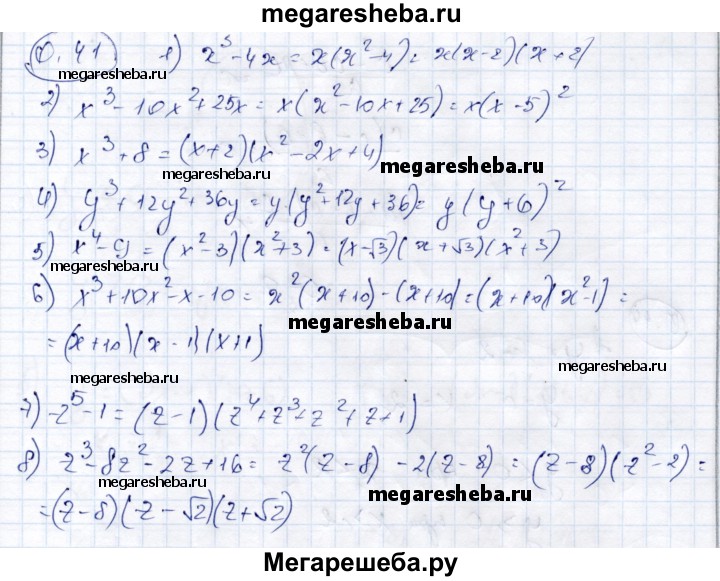 megaresheba.ru
0.41. 1) x³-4x = x(x²-4) = x(x-2)(x+2)
megaresheba.ru
2) x³-10x²+25x = x(x²-10x+25) = x(x-5)²
3) x³+8 = (x+2)(x²-2x+4)
megaresheba.ru
4) y³+12y²+36y = y(y²+12y+36) = y(y+6)²
5) x⁴-9 = (x²-3)(x²+3) = (x-√3)(x+√3)(x²+3)
megaresheba.ru
6) x³+10x²-x-10 = x²(x+10)-(x+10) = (x+10)(x²-1) =
megaresheba.ru
= (x+10)(x-1)(x+1)
megaresheba.ru
7) z⁵-1 = (z-1)(z⁴+z³+z²+z+1)
8) z³-8z²-2z+16 = z²(z-8) -2(z-8) = (z-8)(z²-2) =
megaresheba.ru
megaresheba.ru
= (z-8)(z-√2)(z+√2)
Мегарешеба.ру